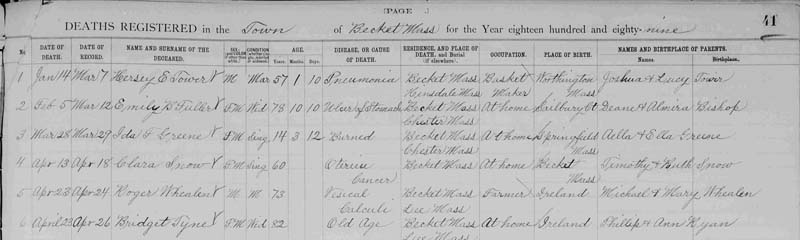 PAGE
DEATHS REGISTERED in the Town of Becket Mass for the Year eighteen hundred and eighty-nine 41
No. DATE OF DEATH. DATE OF RECORD. NAME AND SURNAME OF THE DECEASED. CONDITION AGE. DISEASE, OR CAUSE OF DEATH. RESIDENCE, AND PLACE OF DEATH, and Burial (if elsewhere.) OCCUPATION. PLACE OF BIRTH. NAMES AND BIRTHPLACE OF PARENTS.
Years Months Days. Names. Birthplace.
1 Jan 14 Mar 7 Hersey E Tower M Mar 57 1 10 Pneumonia Becket Mass Basket Worthington Joshua & Lucy Tower
Hinsdale Mass Maker Mass
2 Feb 5 Mar 12 Emily B Fuller F M Wid 78 10 10 Ulcer of Stomach Becket Mass At home Salbury Ct Deane & Almira Bishop
Chester Mass
3 Mar 28 Mar 29 Ida F Greene F M Sing 14 3 12 Burned Becket Mass At home Springfield Aella & Ella Greene
Chester Mass Mass
4 Apr 13 Apr 18 Clara Snow F M Sing 60 Uterine Becket Mass At home Becket Timothy & Ruth Snow
Cancer Mass
5 Apr 23 Apr 24 Roger Whealen M M 73 Visical Becket Mass Farmer Ireland Michael & Mary Whealen
Calculi Lee Mass
6 April 23 Apr 26 Bridget Tyne F M Wid 82 Old Age Becket Mass At home Ireland Phillip & Ann Ryan
Lee Mass